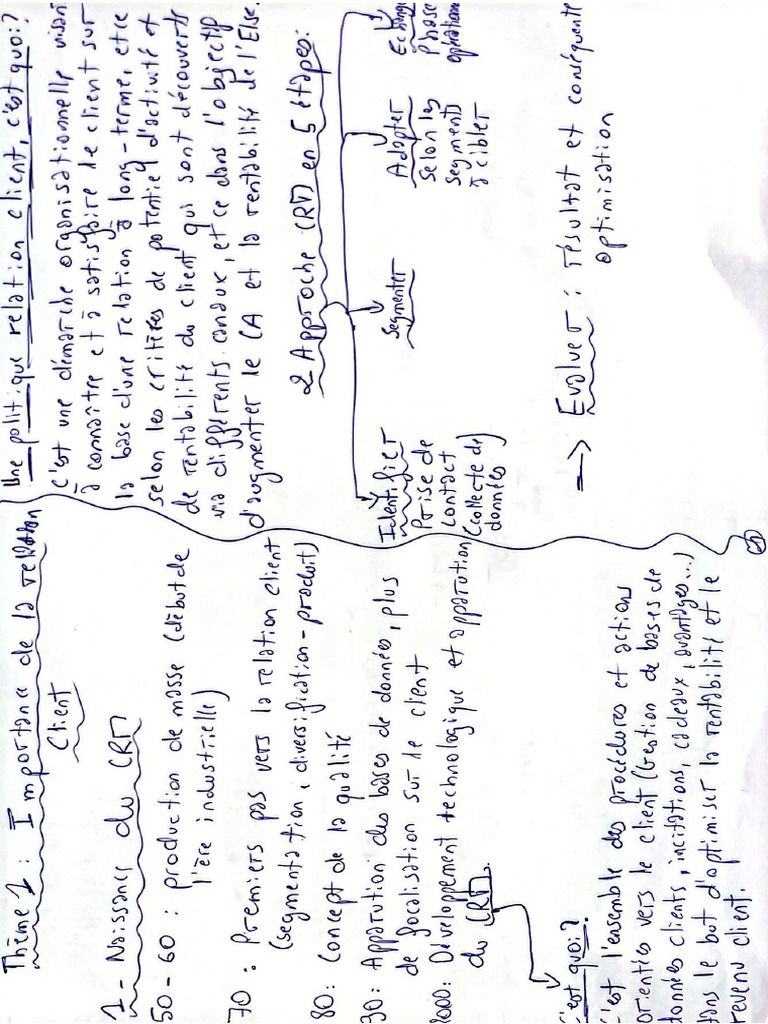 Thème 1 : Importance de la relation
Client
1 - Naissance du CRM
50 - 60 : production de masse (début de
l'ère industrielle)
70 : Premiers pas vers la relation client
(segmentation, diversification-produit)
80 : Concept de la qualité
90 : Apparution des bases de données, plus
de focalisation sur le client
2000 : Développement technologique et apparution
du CRM.
C'est quoi ?
C'est l'ensemble des procédures et actions
orientées vers le client (Gestion de bases de
données clients, incitations, cadeaux, avantages...)
dans le but d'optimiser la rentabilité et le
revenu client.
Une politique relation client, c'est quoi ?
C'est une démarche organisationnelle visant
à connaître et à satisfaire le client sur
la base d'une relation à long-terme, et ce
selon les critères de potentiel d'activité et
de rentabilité du client qui sont découverts
via différents canaux, et ce dans l'objectif
d'augmenter le CA et la rentabilité de l'Else.
2 Approche CRM en 5 étapes :
Identifier
Prise de
contact
(collecte de
données)
Segmenter
Adapter
Selon les
segments
à cibler
Echange
Phase
opération
=> Evaluer : résultat et conséquente
optimisation